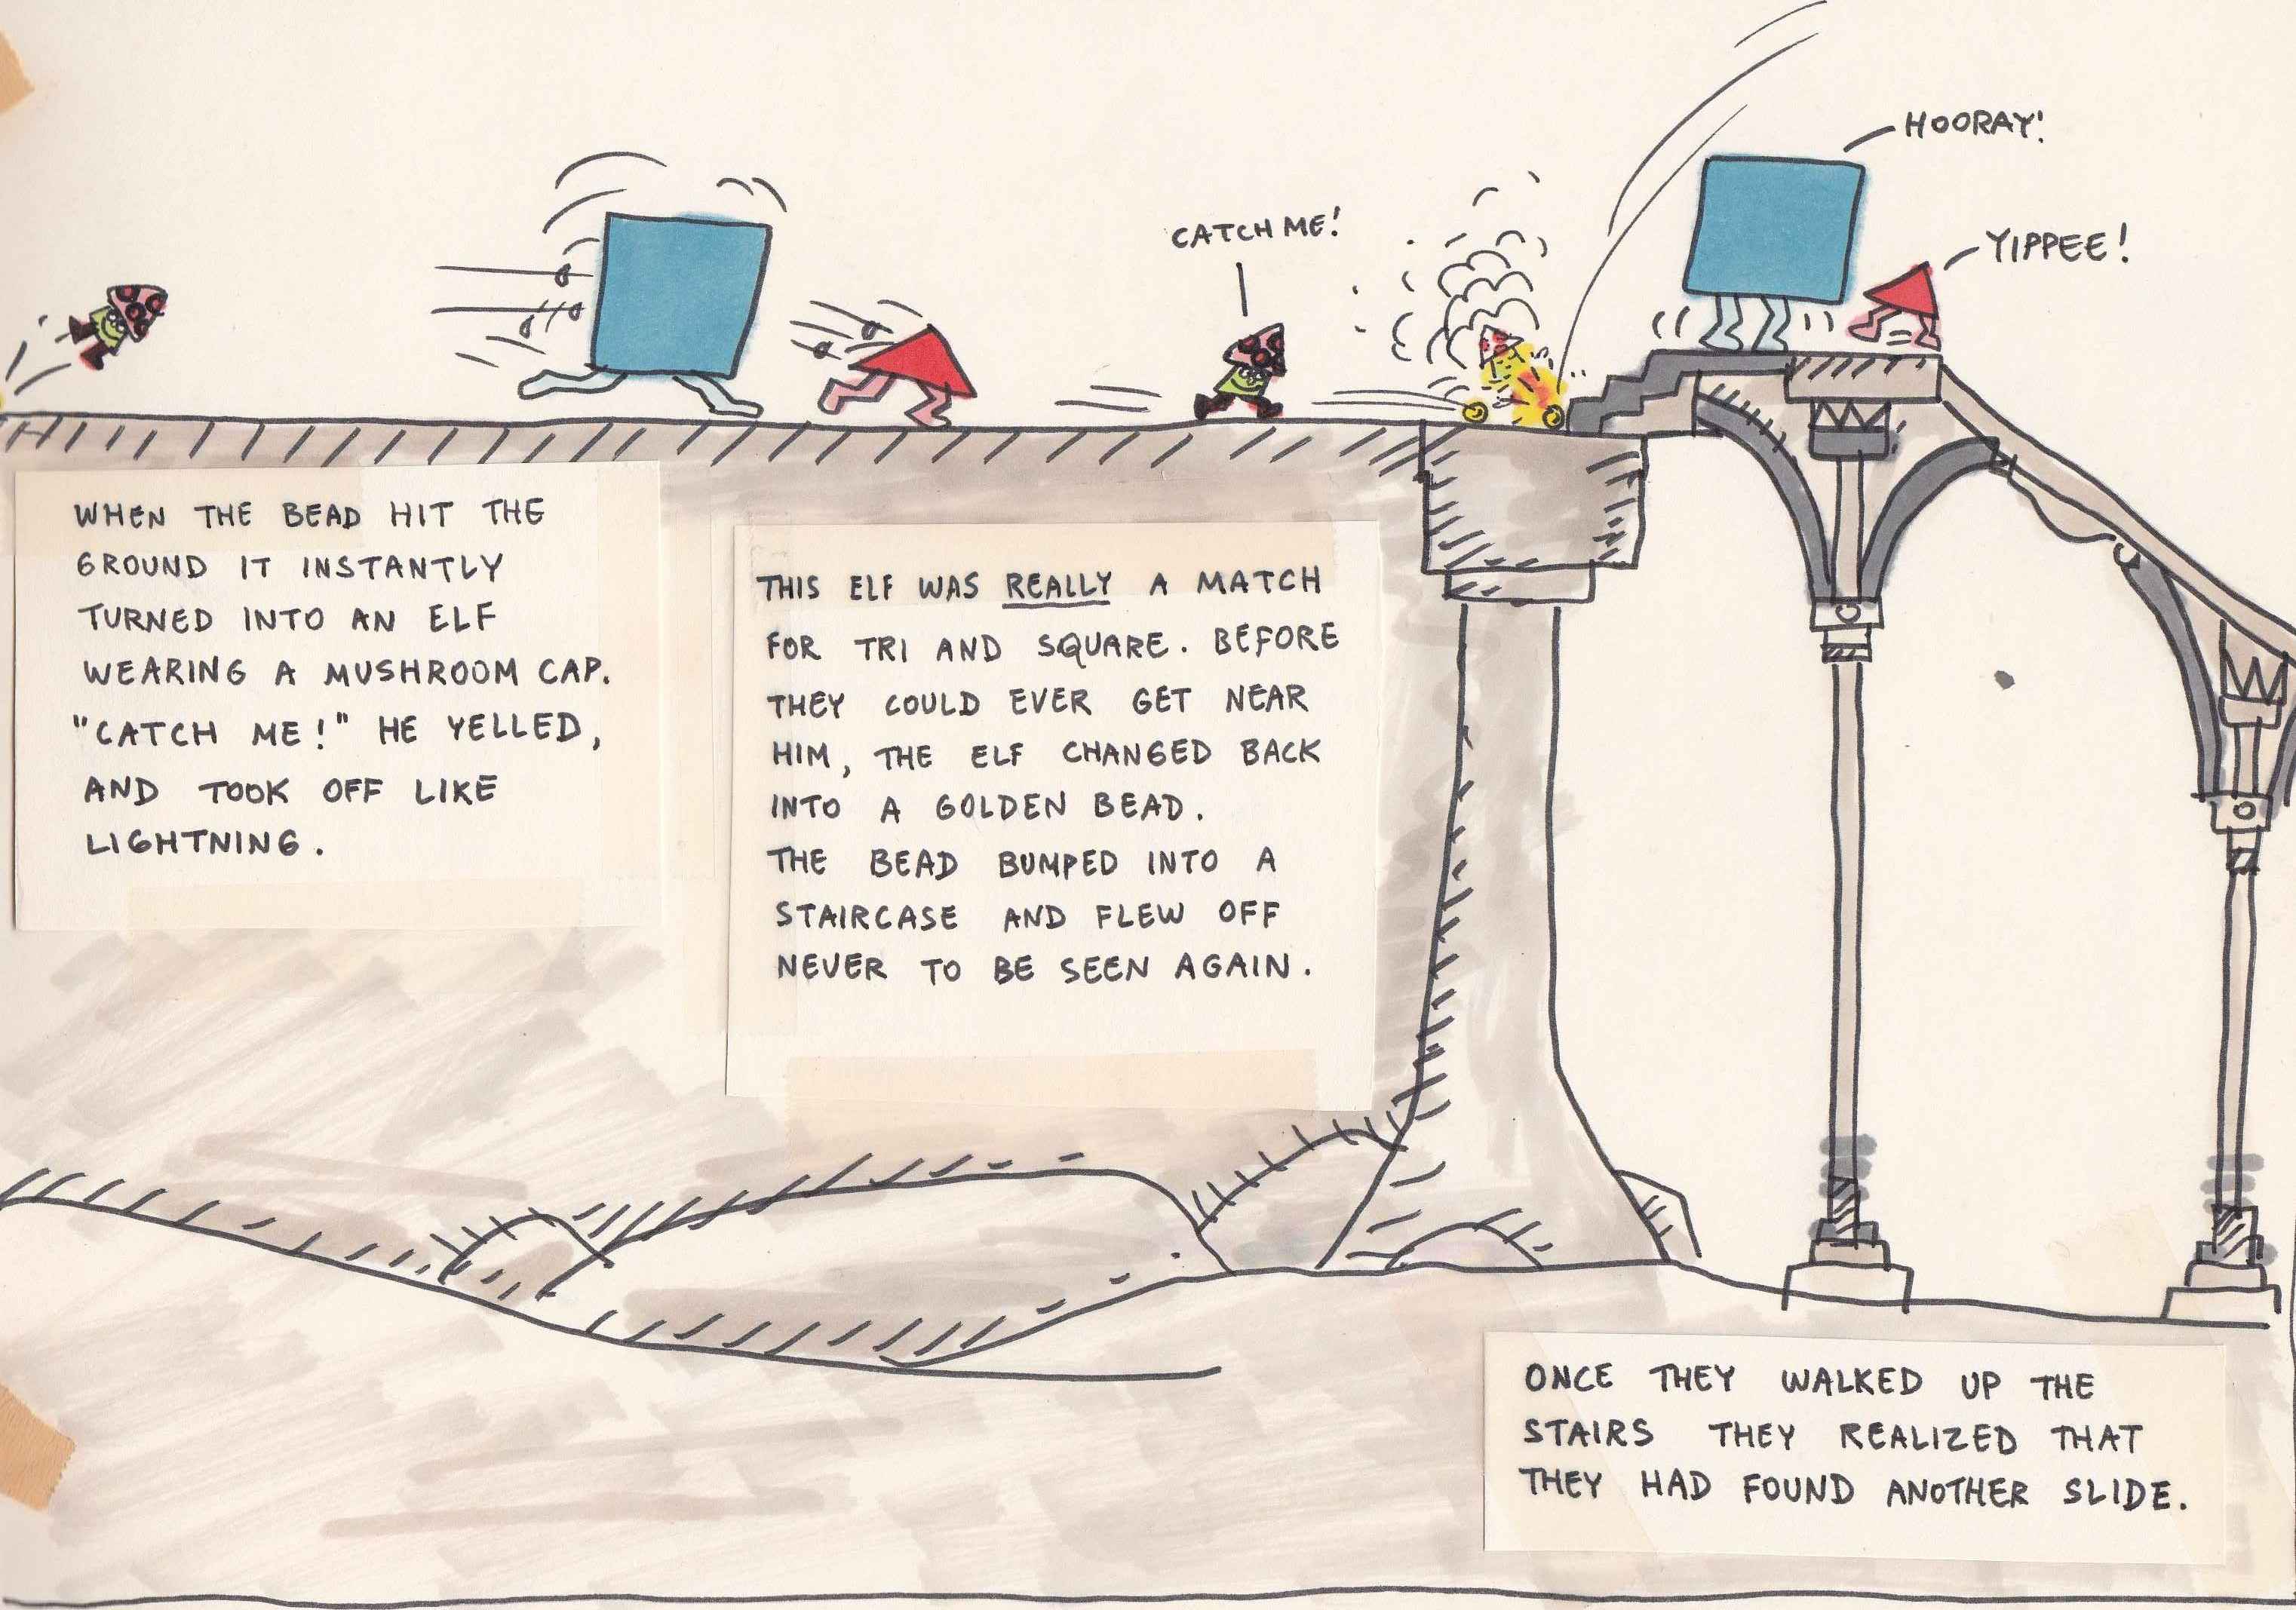 HOORAY!
YIPPEE!
CATCH ME!
WHEN THE BEAD HIT THE
GROUND IT INSTANTLY
TURNED INTO AN ELF
WEARING A MUSHROOM CAP.
"CATCH ME!" HE YELLED,
AND TOOK OFF LIKE
LIGHTNING.
THIS ELF WAS REALLY A MATCH
FOR TRI AND SQUARE. BEFORE
THEY COULD EVER GET NEAR
HIM, THE ELF CHANGED BACK
INTO A GOLDEN BEAD.
THE BEAD BUMPED INTO A
STAIRCASE AND FLEW OFF
NEVER TO BE SEEN AGAIN.
ONCE THEY WALKED UP THE
STAIRS THEY REALIZED THAT
THEY HAD FOUND ANOTHER SLIDE.